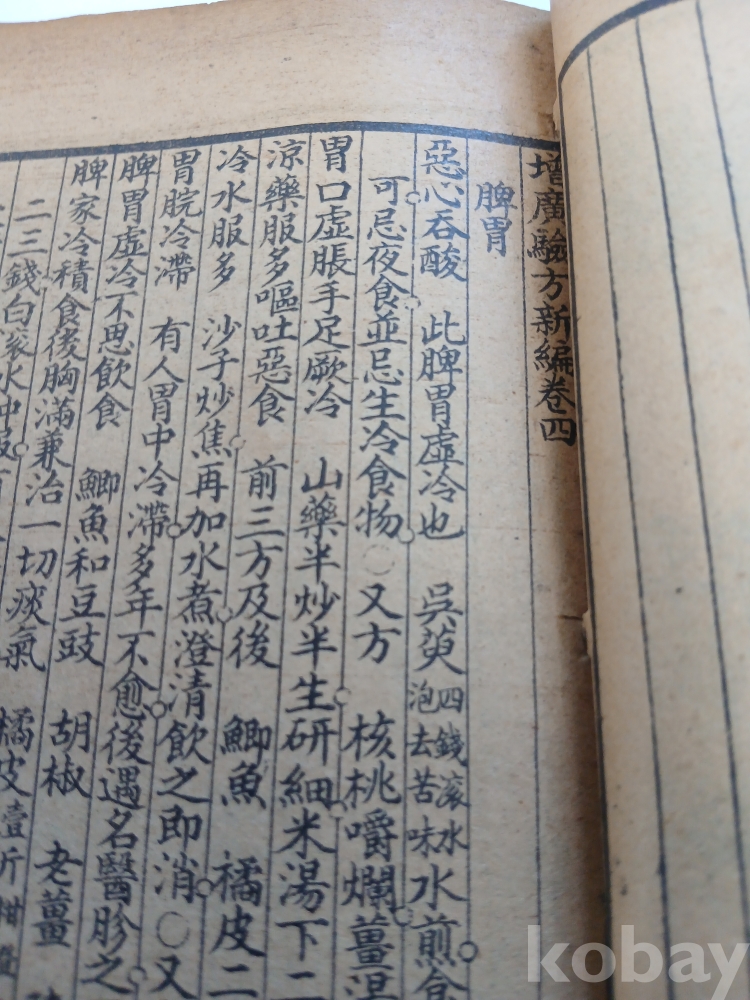 增廣驗方新編卷四
脾胃
惡心吞酸 此脾胃虛冷也 吳萸四錢滾水泡去苦味水煎食
可忌夜食並忌生冷食物○又方 核桃嚼爛薑湯
胃口虛脹手足厥冷 山藥半炒半生研細米湯下二
涼藥服多嘔吐惡食 前三方及後 鯽魚 橘皮二
冷水服多 沙子炒焦再加水煮澄清飲之即消○又
胃脘冷滯 有人胃中冷滯多年不愈後遇名醫胗之
脾胃虛冷不思飲食 鯽魚和豆豉 胡椒 老薑
脾家冷積食後胸滿兼治一切痰氣 橘皮壹斤
二三錢白滾水沖服
kobay